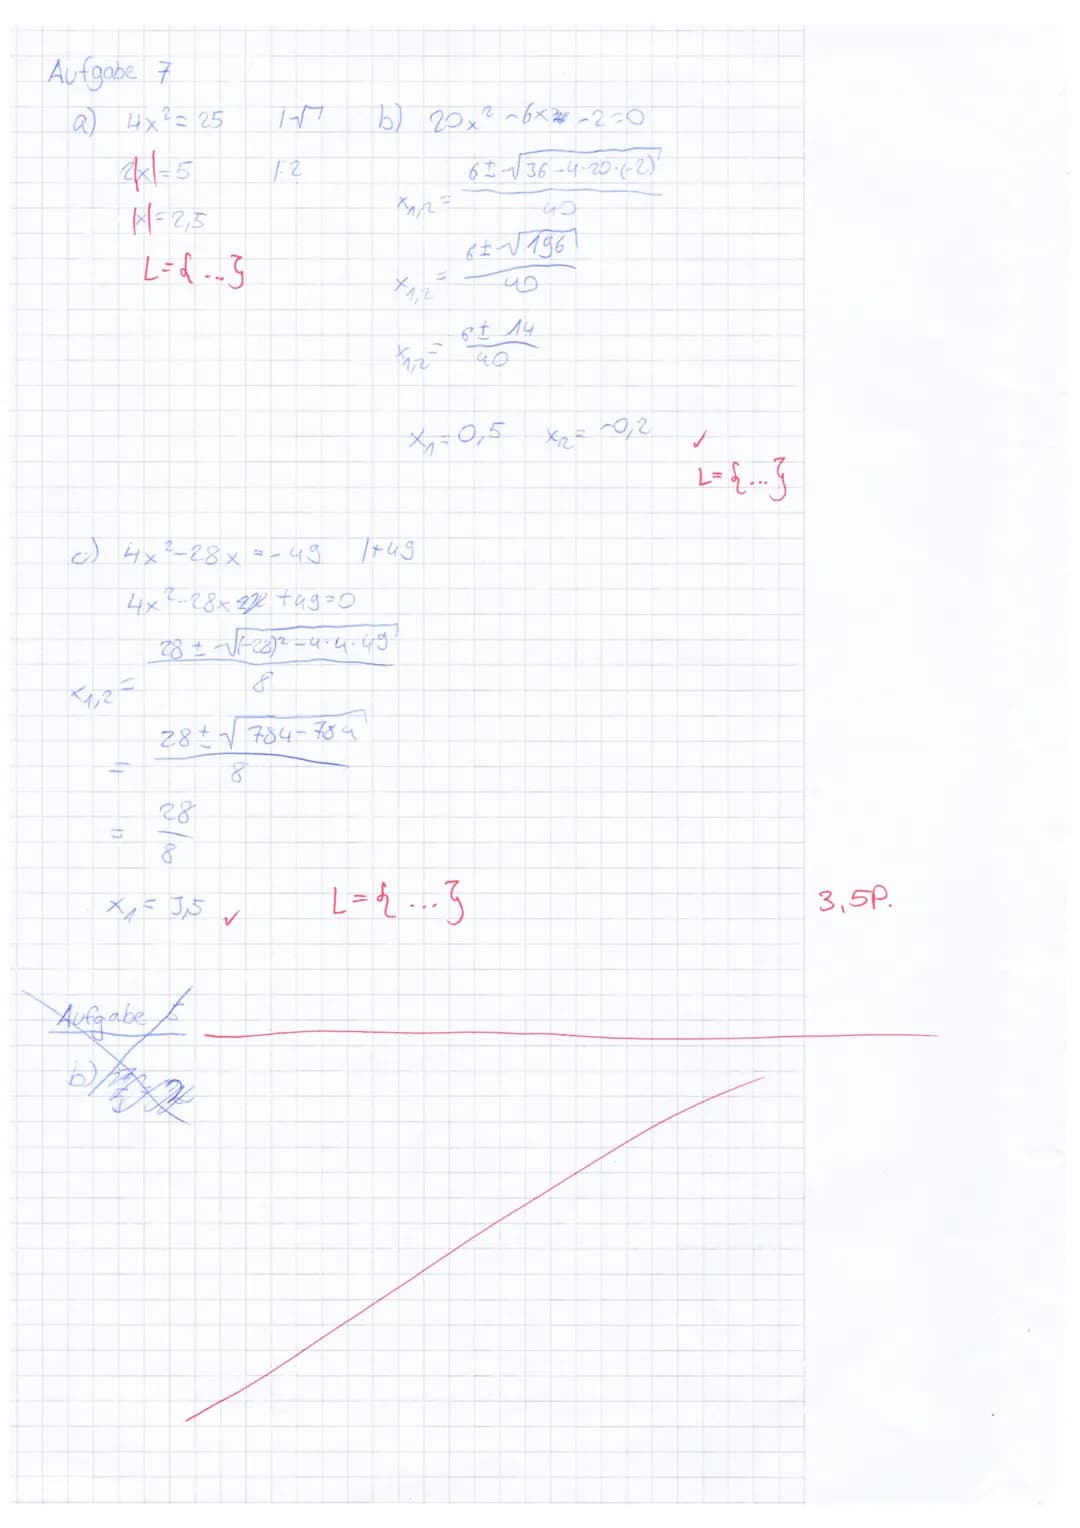 Aufgabe 7
a) 4x² = 25 |√
2|x| = 5 |:2
|x| = 2,5
L = {...}
b) 20x² - 6x - 2 = 0
x₁,₂ = (6 ± √(36 - 4·20·(-2))) / 40
x₁,₂ = (6 ± √196) / 40
x₁,₂ = (6 ± 14) / 40
x₁ = 0,5 x₂ = -0,2 ✓
L = {...}
c) 4x² - 28x = -49 |+49
4x² - 28x + 49 = 0
x₁,₂ = (28 ± √((-28)² - 4·4·49)) / 8
= (28 ± √(784 - 784)) / 8
= 28 / 8
x₁ = 3,5 ✓ L = {...} 3,5P.
Aufgabe
b)